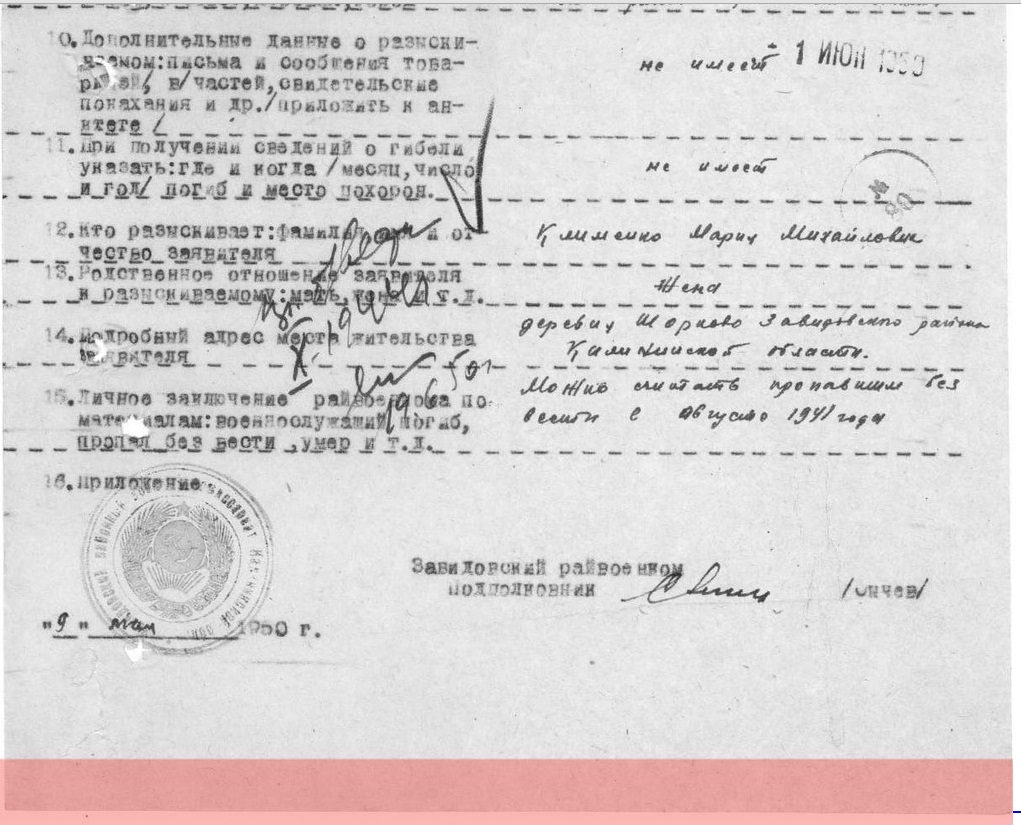 10. Дополнительные данные о разыски-
ваемом: письма и сообщения това-
рищей, в/частей, свидетельские
показания и др./приложить к ан-
кете/
не имеет
- 1 ИЮН 1950
11. При получении сведений о гибели
указать: где и когда /месяц, число
и год/ погиб и место похорон.
не имеет
12. Кто разыскивает: фамилия, и от-
чество заявителя
Клименко Мария Михайловна
13. Родственное отношение заявителя
к разыскиваемому: мать, жена и т.д.
Жена
14. Подробный адрес места жительства
заявителя
деревня Шорново Завидовского района
Калининской области.
15. Личное заключение райвоенкома по
материалам: военнослужащий погиб,
пропал без вести, умер и т.д.
Можно считать пропавшим без
вести с августа 1941 года
16. Приложение
Завидовский райвоенком
Подполковник
/Ончев/
"9" мая 1950 г.